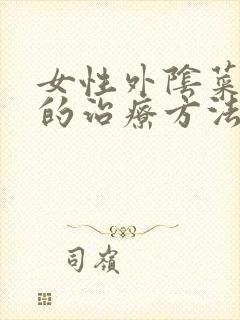 女性外陰菜
的治療方法
司嶺